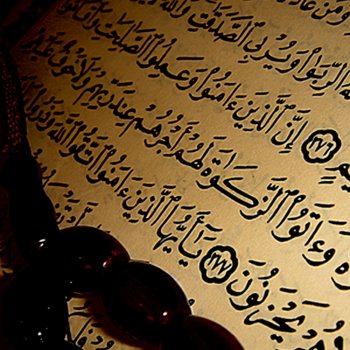 وَمَنْ عَادَ
ٱلرِّبَوٰا۟ وَيُرْبِى ٱلصَّدَقَـٰتِ وَٱللَّهُ
٢٧٦ إِنَّ ٱلَّذِينَ ءَامَنُوا۟ وَعَمِلُوا۟ ٱلصَّـٰلِحَـٰتِ وَأَقَامُوا۟
وَءَاتَوُا۟ ٱلزَّكَوٰةَ لَهُمْ أَجْرُهُمْ عِندَ رَبِّهِمْ وَلَا خَوْفٌ عَلَيْـ
يَحْزَنُونَ ٢٧٧ يَـٰٓأَيُّهَا ٱلَّذِينَ ءَامَنُوا۟ ٱتَّقُوا۟ ٱللَّهَ وَذَرُوا۟